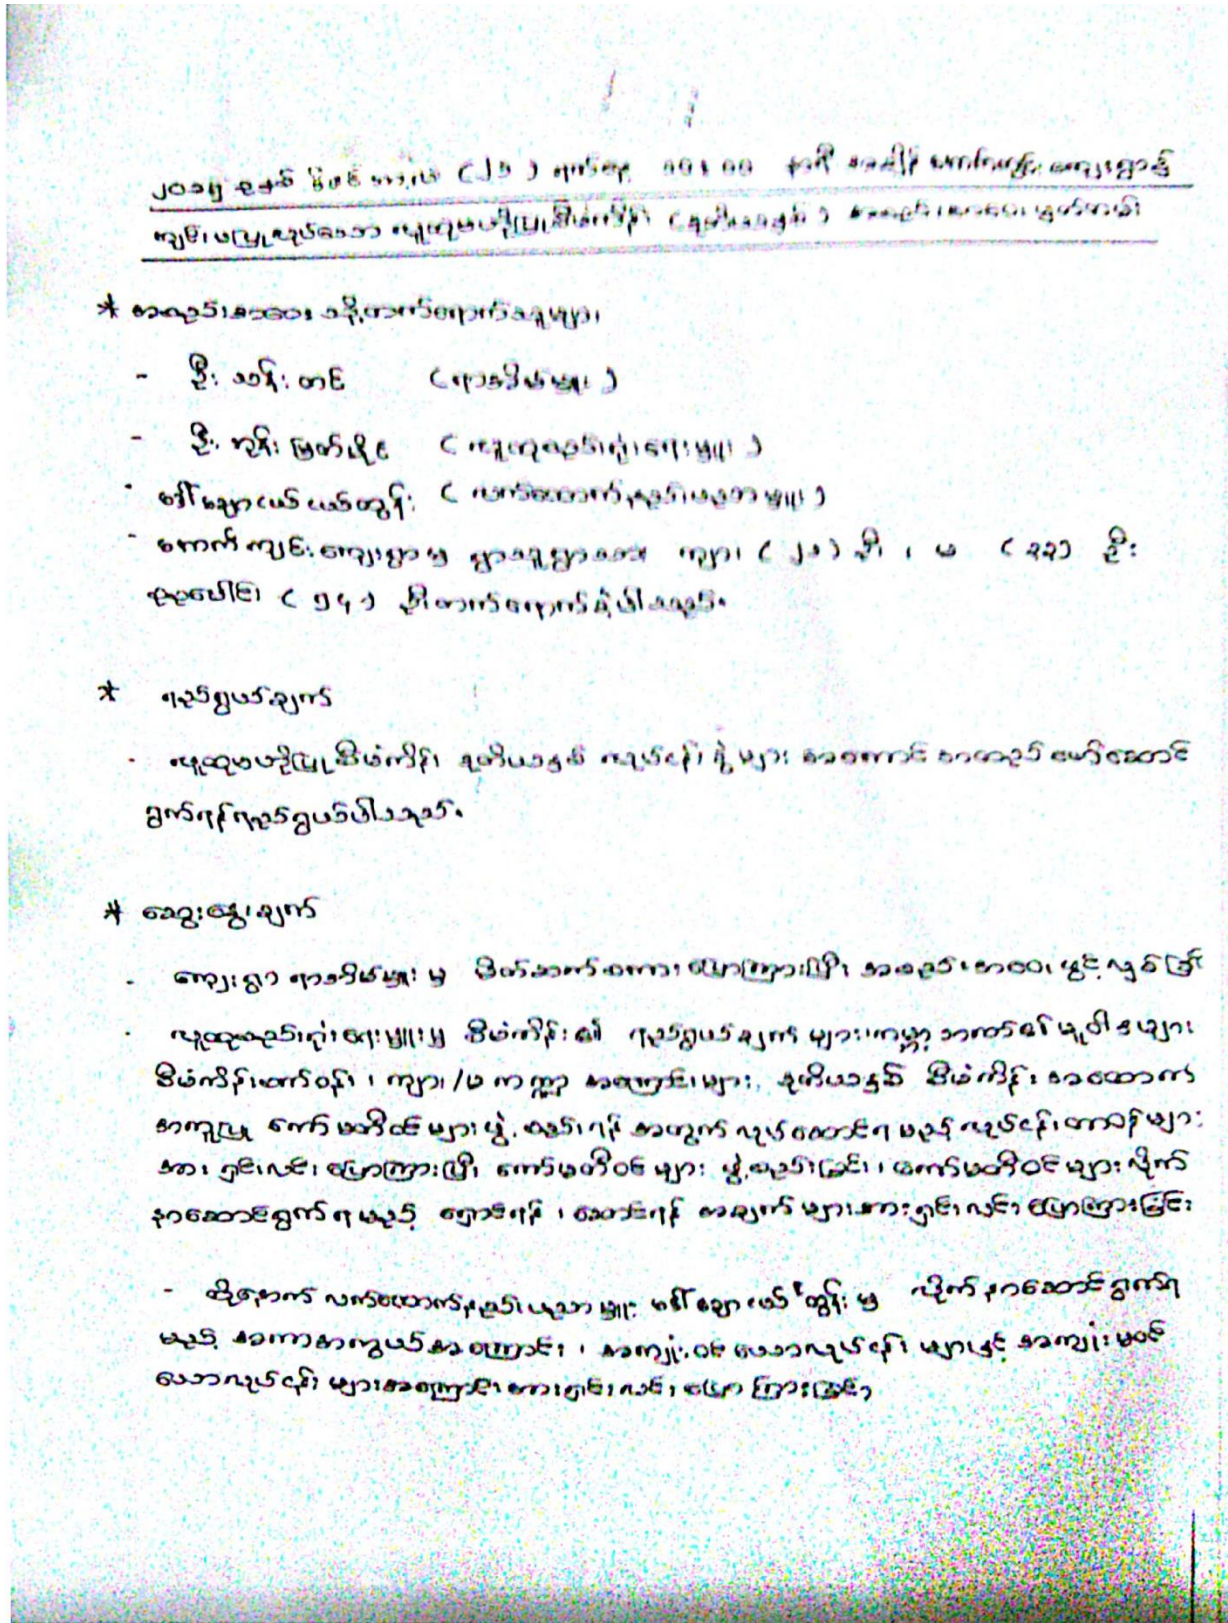 ၂၀၁၅ ခုနှစ် ဒီဇင်ဘာလ ( ) ရက်နေ့ ၁၁:၀၀ နာရီ အချိန် ကောက်ကျင်းကျေးရွာ၌
ကျင်းပပြုလုပ်သော လူထုဗဟိုပြုစီမံကိန်း (ဒုတိယနှစ်) အစည်းအဝေးမှတ်တမ်း
* အစည်းအဝေး သို့တက်ရောက်သူများ
- ဦးသန်းတင် (ရာအိမ်မှူး)
- ဦး ထွန်း မြတ်နိုင် (လူထုစည်းရုံးရေးမှူး)
- ဒေါ်မေဇော်ဝယ်ထွန်း (လက်ထောက်နည်းပညာမှူး)
- ကောက်ကျင်းကျေးရွာမှ ရွာသူရွာသား ကျား (၂၁) ဦး ၊ မ (၃၃) ဦး
စုစုပေါင်း (၅၄) ဦးတက်ရောက်ခဲ့ပါသည်။
* ရည်ရွယ်ချက်
- လူထုဗဟိုပြုစီမံကိန်း ဒုတိယနှစ် လုပ်ငန်းခွဲများ အကောင်အထည်ဖော်ဆောင်
ရွက်ရန်ရည်ရွယ်ပါသည်။
* ဆွေးနွေးချက်
- ကျေးရွာ ရာအိမ်မှူးမှ မိတ်ဆက်စကားပြောကြားပြီး အစည်းအဝေးဖွင့်လှစ်ခြင်း
- လူထုစည်းရုံးရေးမှူးမှ စီမံကိန်း၏ ရည်ရွယ်ချက်များ၊ကမ္ဘာ့ဘဏ်၏မူဝါဒများ
စီမံကိန်းဝက်ဝန်း ၊ ကျား/မ ကဏ္ဍ အကြောင်းများ, ဒုတိယနှစ် စီမံကိန်း အထောက်
အကူပြု ကော်မတီဝင်များဖွဲ့စည်းရန် အတွက် လုပ်ဆောင်ရမည့် လုပ်ငန်းတာဝန်များ
အား ရှင်းလင်းပြောကြားပြီး ကော်မတီဝင်များ ဖွဲ့စည်းခြင်း၊ ကော်မတီဝင်များ လိုက်
နာဆောင်ရွက်ရမည့် ရှောင်ရန် ၊ ဆောင်ရန် အချက်များအားရှင်းလင်းပြောကြားခြင်း
- ထို့နောက် လက်ထောက်နည်းပညာမှူး ထွန်းမှ လိုက်နာဆောင်ရွက်ရ
မည့် အကာအကွယ်အကြောင်း ၊ အကျုံးဝင်သောလုပ်ငန်းများနှင့် အကျုံးမဝင်
သောလုပ်ငန်းများအကြောင်းအားရှင်းလင်းပြောကြားခြင်း